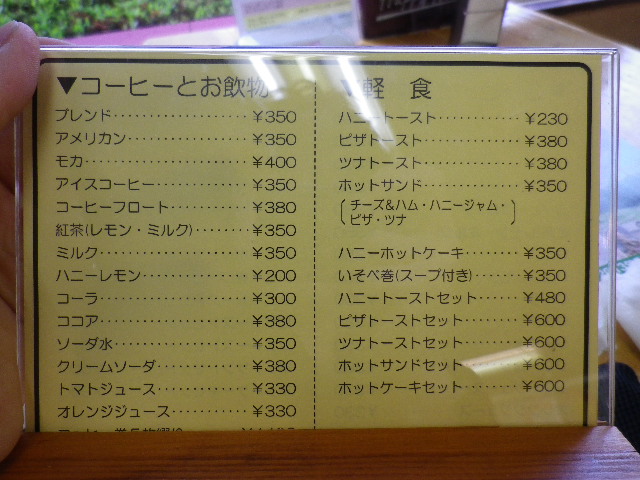 ▼コーヒーとお飲物
ブレンド ¥350
アメリカン ¥350
モカ ¥400
アイスコーヒー ¥350
コーヒーフロート ¥380
紅茶(レモン・ミルク) ¥350
ミルク ¥350
ハニーレモン ¥200
コーラ ¥300
ココア ¥380
ソーダ水 ¥350
クリームソーダ ¥380
トマトジュース ¥330
オレンジジュース ¥330
▼軽 食
ハニートースト ¥230
ピザトースト ¥380
ツナトースト ¥380
ホットサンド ¥350
(チーズ&ハム・ハニージャム・
ピザ・ツナ)
ハニーホットケーキ ¥350
いそべ巻(スープ付き) ¥350
ハニートーストセット ¥480
ピザトーストセット ¥600
ツナトーストセット ¥600
ホットサンドセット ¥600
ホットケーキセット ¥600